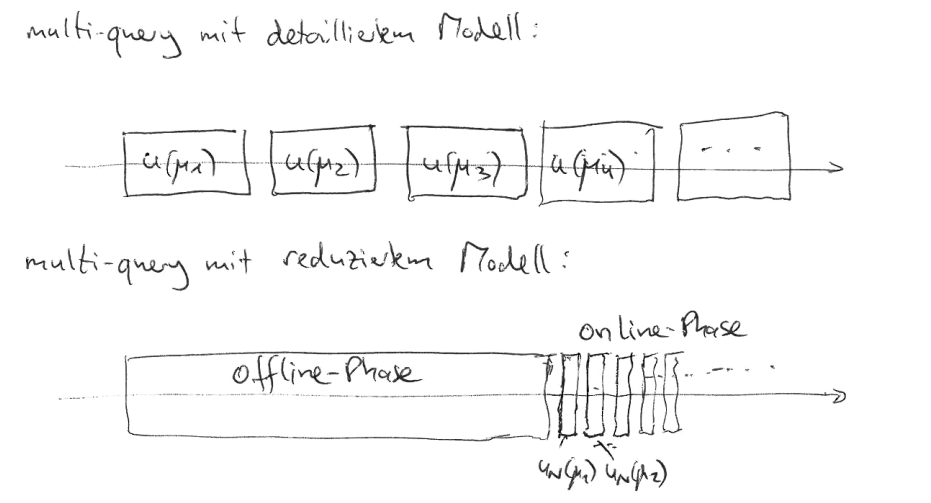 multi-query mit detailliertem Modell:
u(μ₁) u(μ₂) u(μ₃) u(μ₄) ...
multi-query mit reduziertem Modell:
Online-Phase
Offline-Phase
u_N(μ₁) u_N(μ₂)